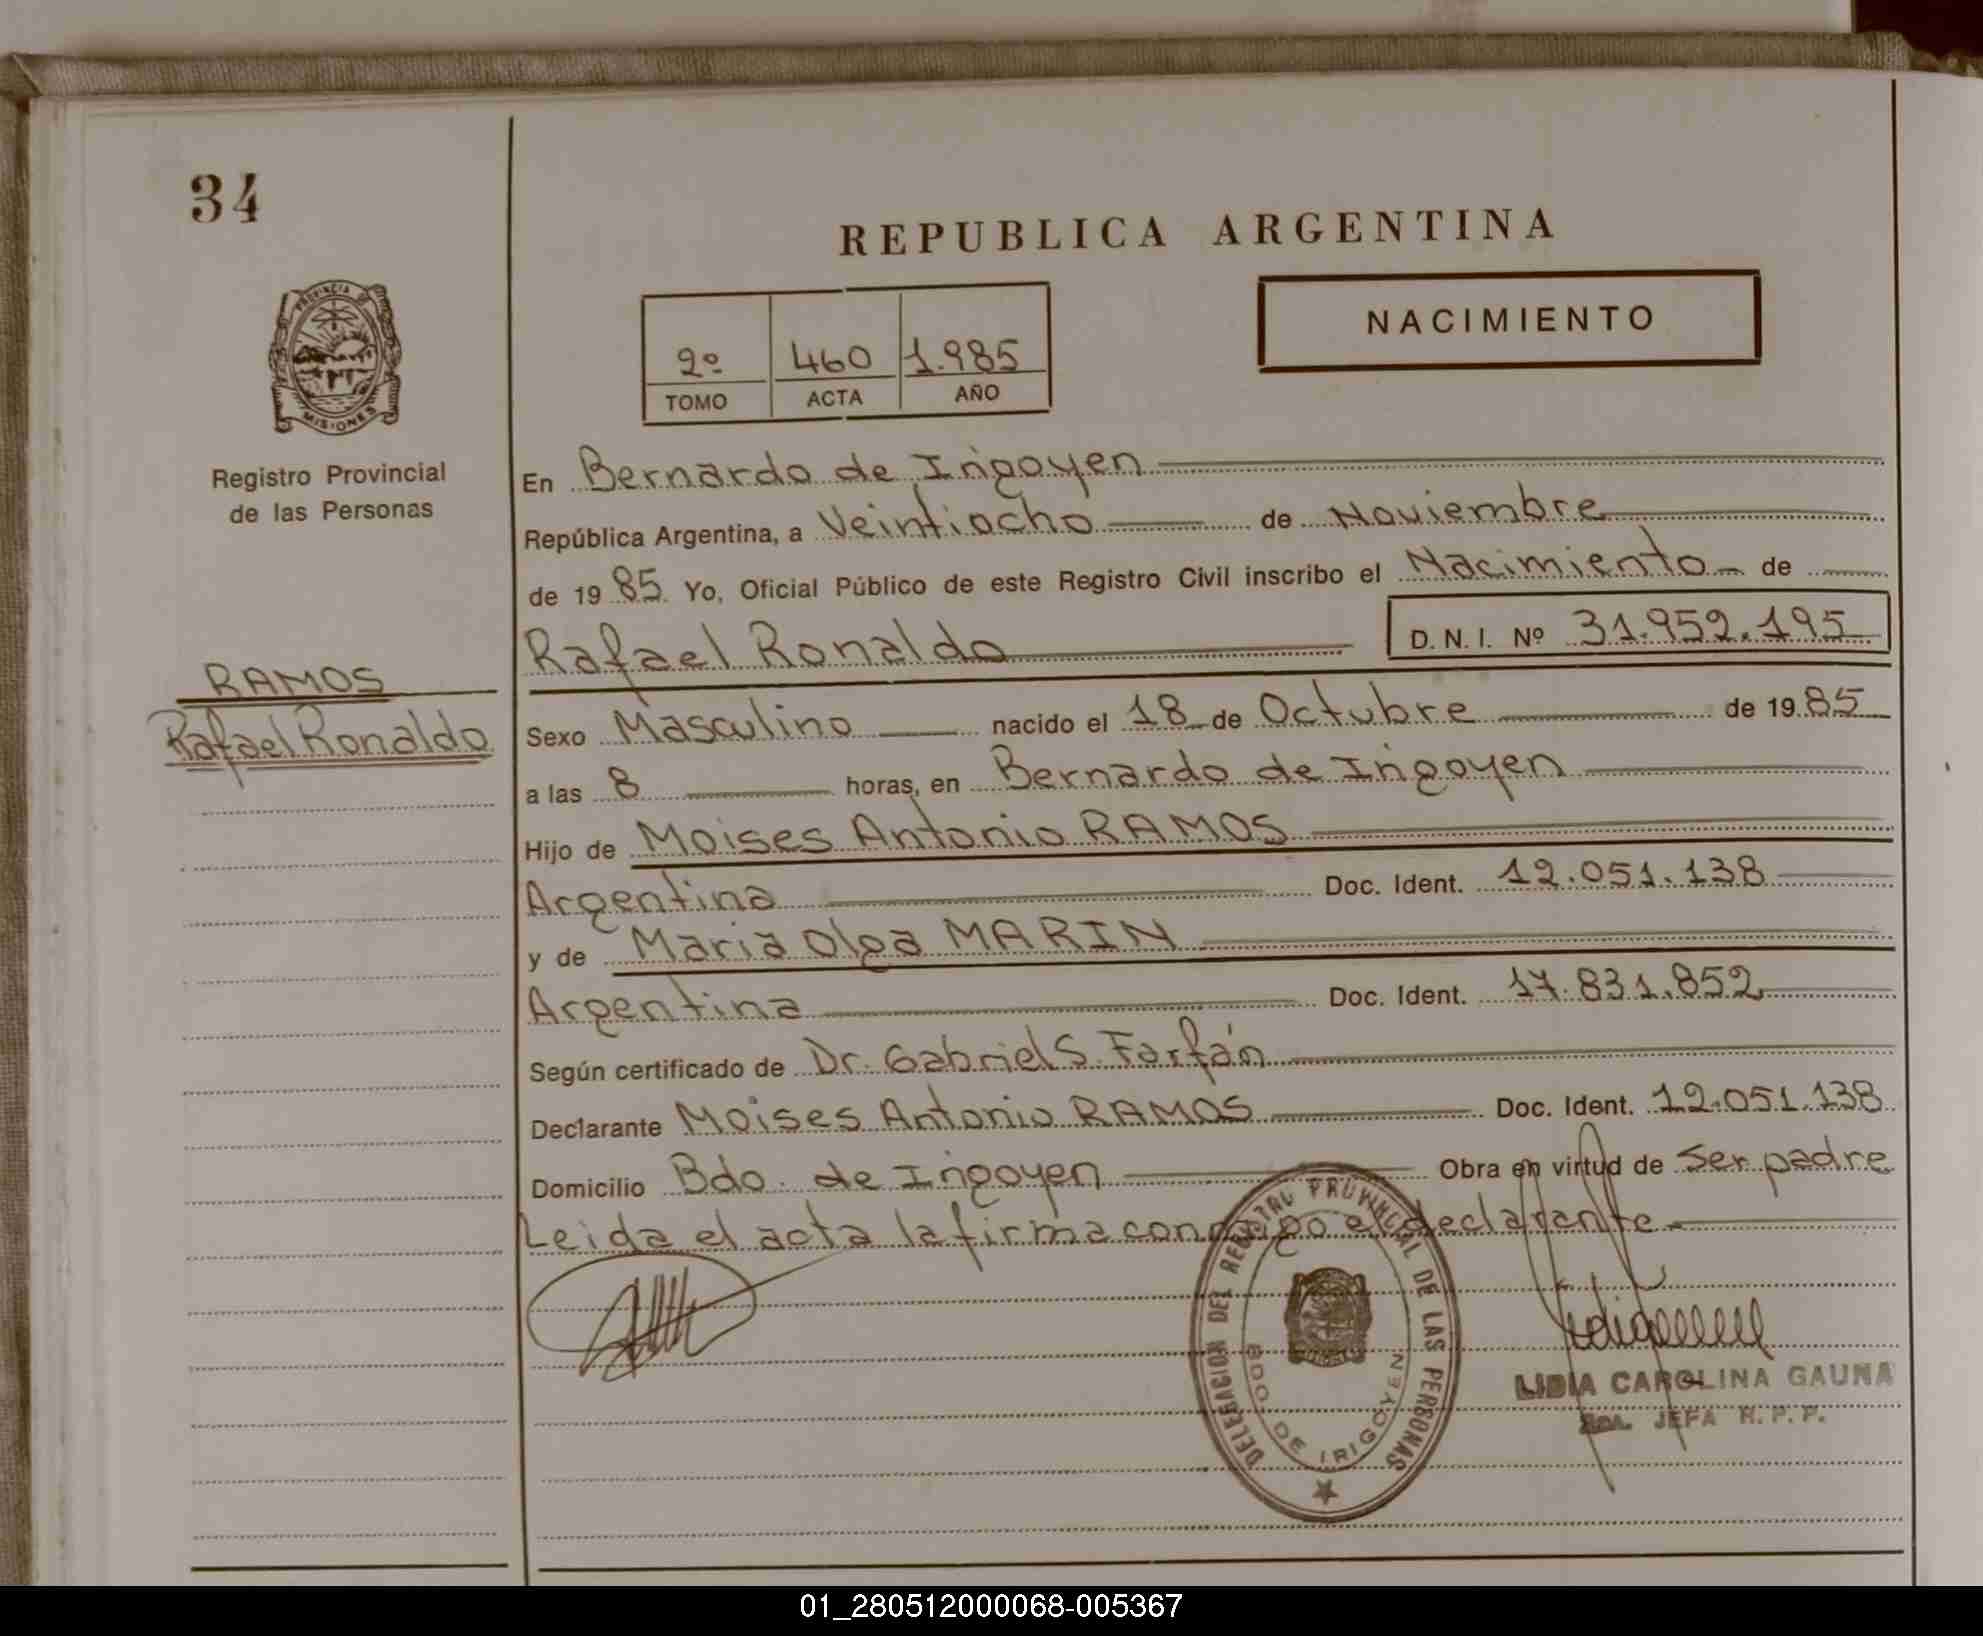 34
REPUBLICA ARGENTINA
NACIMIENTO
2º 460 1.985
TOMO ACTA AÑO
PROVINCIA DE
MISIONES
Registro Provincial
de las Personas
RAMOS
Rafael Ronaldo
En Bernardo de Irigoyen
República Argentina, a Veintiocho de Noviembre
de 1985 Yo, Oficial Público de este Registro Civil inscribo el Nacimiento de
Rafael Ronaldo D. N. I. Nº 31.952.195
Sexo Masculino nacido el 18 de Octubre de 1985
a las 8 horas, en Bernardo de Irigoyen
Hijo de Moises Antonio RAMOS
Argentina Doc. Ident. 12.051.138
y de Maria Olga MARIN
Argentina Doc. Ident. 17.831.852
Según certificado de Dr. Gabriel S. Farfán
Declarante Moises Antonio RAMOS Doc. Ident. 12.051.138
Domicilio Bdo. de Irigoyen Obra en virtud de Ser padre
Leida el acta la firma conmigo el declarante
DELEGACION DEL REGISTRO PROVINCIAL DE LAS PERSONAS
BDO. DE IRIGOYEN
LIDIA CAROLINA GAUNA
JEFA R. P. P.
01_280512000068-005367